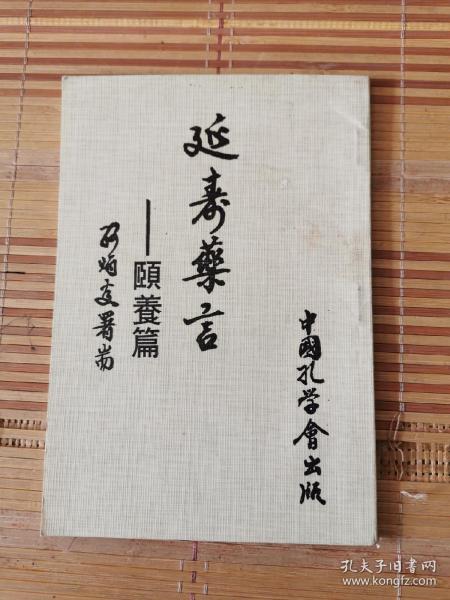 中國孔学會出版
延寿藥言
—頤養篇
署耑
孔夫子旧书网
www.kongfz.com